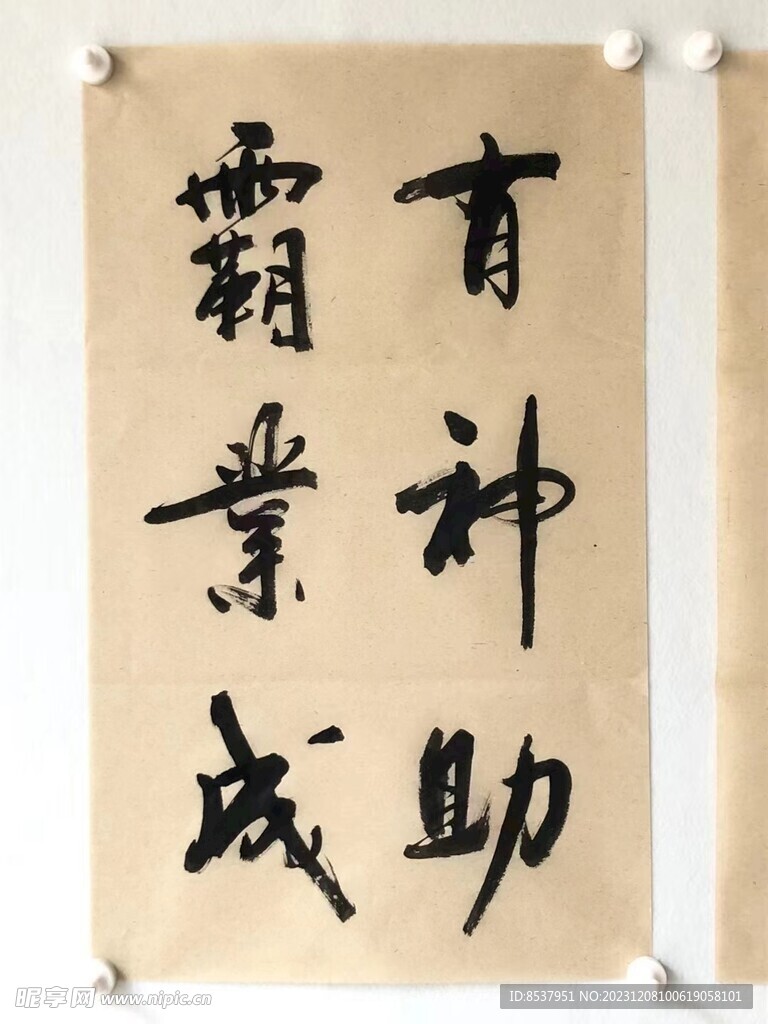 有神助
霸業成
昵享网 www.nipic.cn
ID:8537951 NO:20231208100619058101